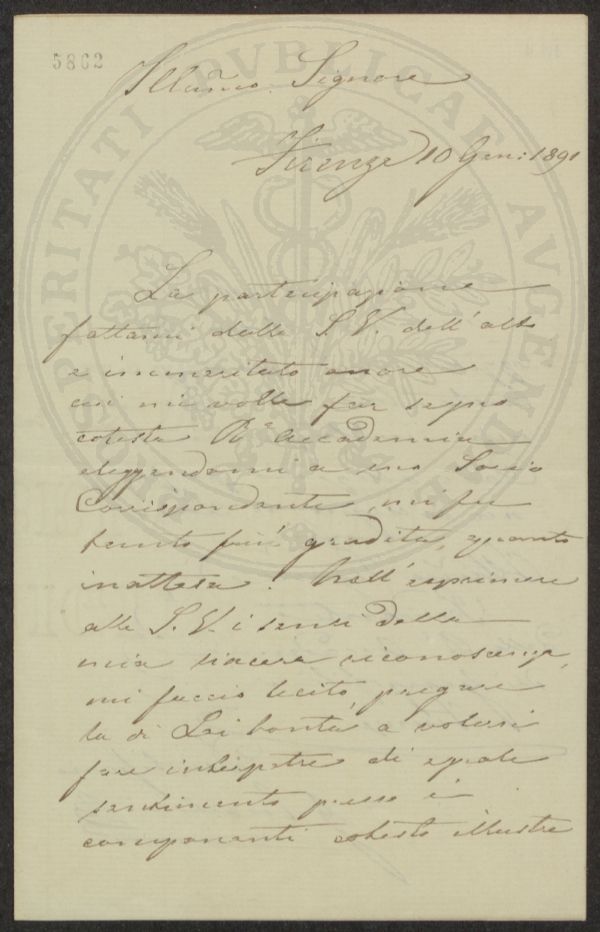 5862
Illũmo. Signore
Firenze 10 Gen: 1891
La partecipazione
fattami dalla S. V. dell'alto
e immeritato onore
cui mi volle far segno
cotesta Rª Accademia
eleggendomi a suo Socio
Corrispondente, mi fu
tanto più gradita, quanto
inattesa. Nell'esprimere
alla S. V. i sensi della
mia sincera riconoscenza,
mi faccio lecito pregare
la di Lei bontà a volersi
fare interpetre di eguale
sentimento presso i
componenti cotesto illustre
PROSPERITATI PVBLICAE AVGENDAE